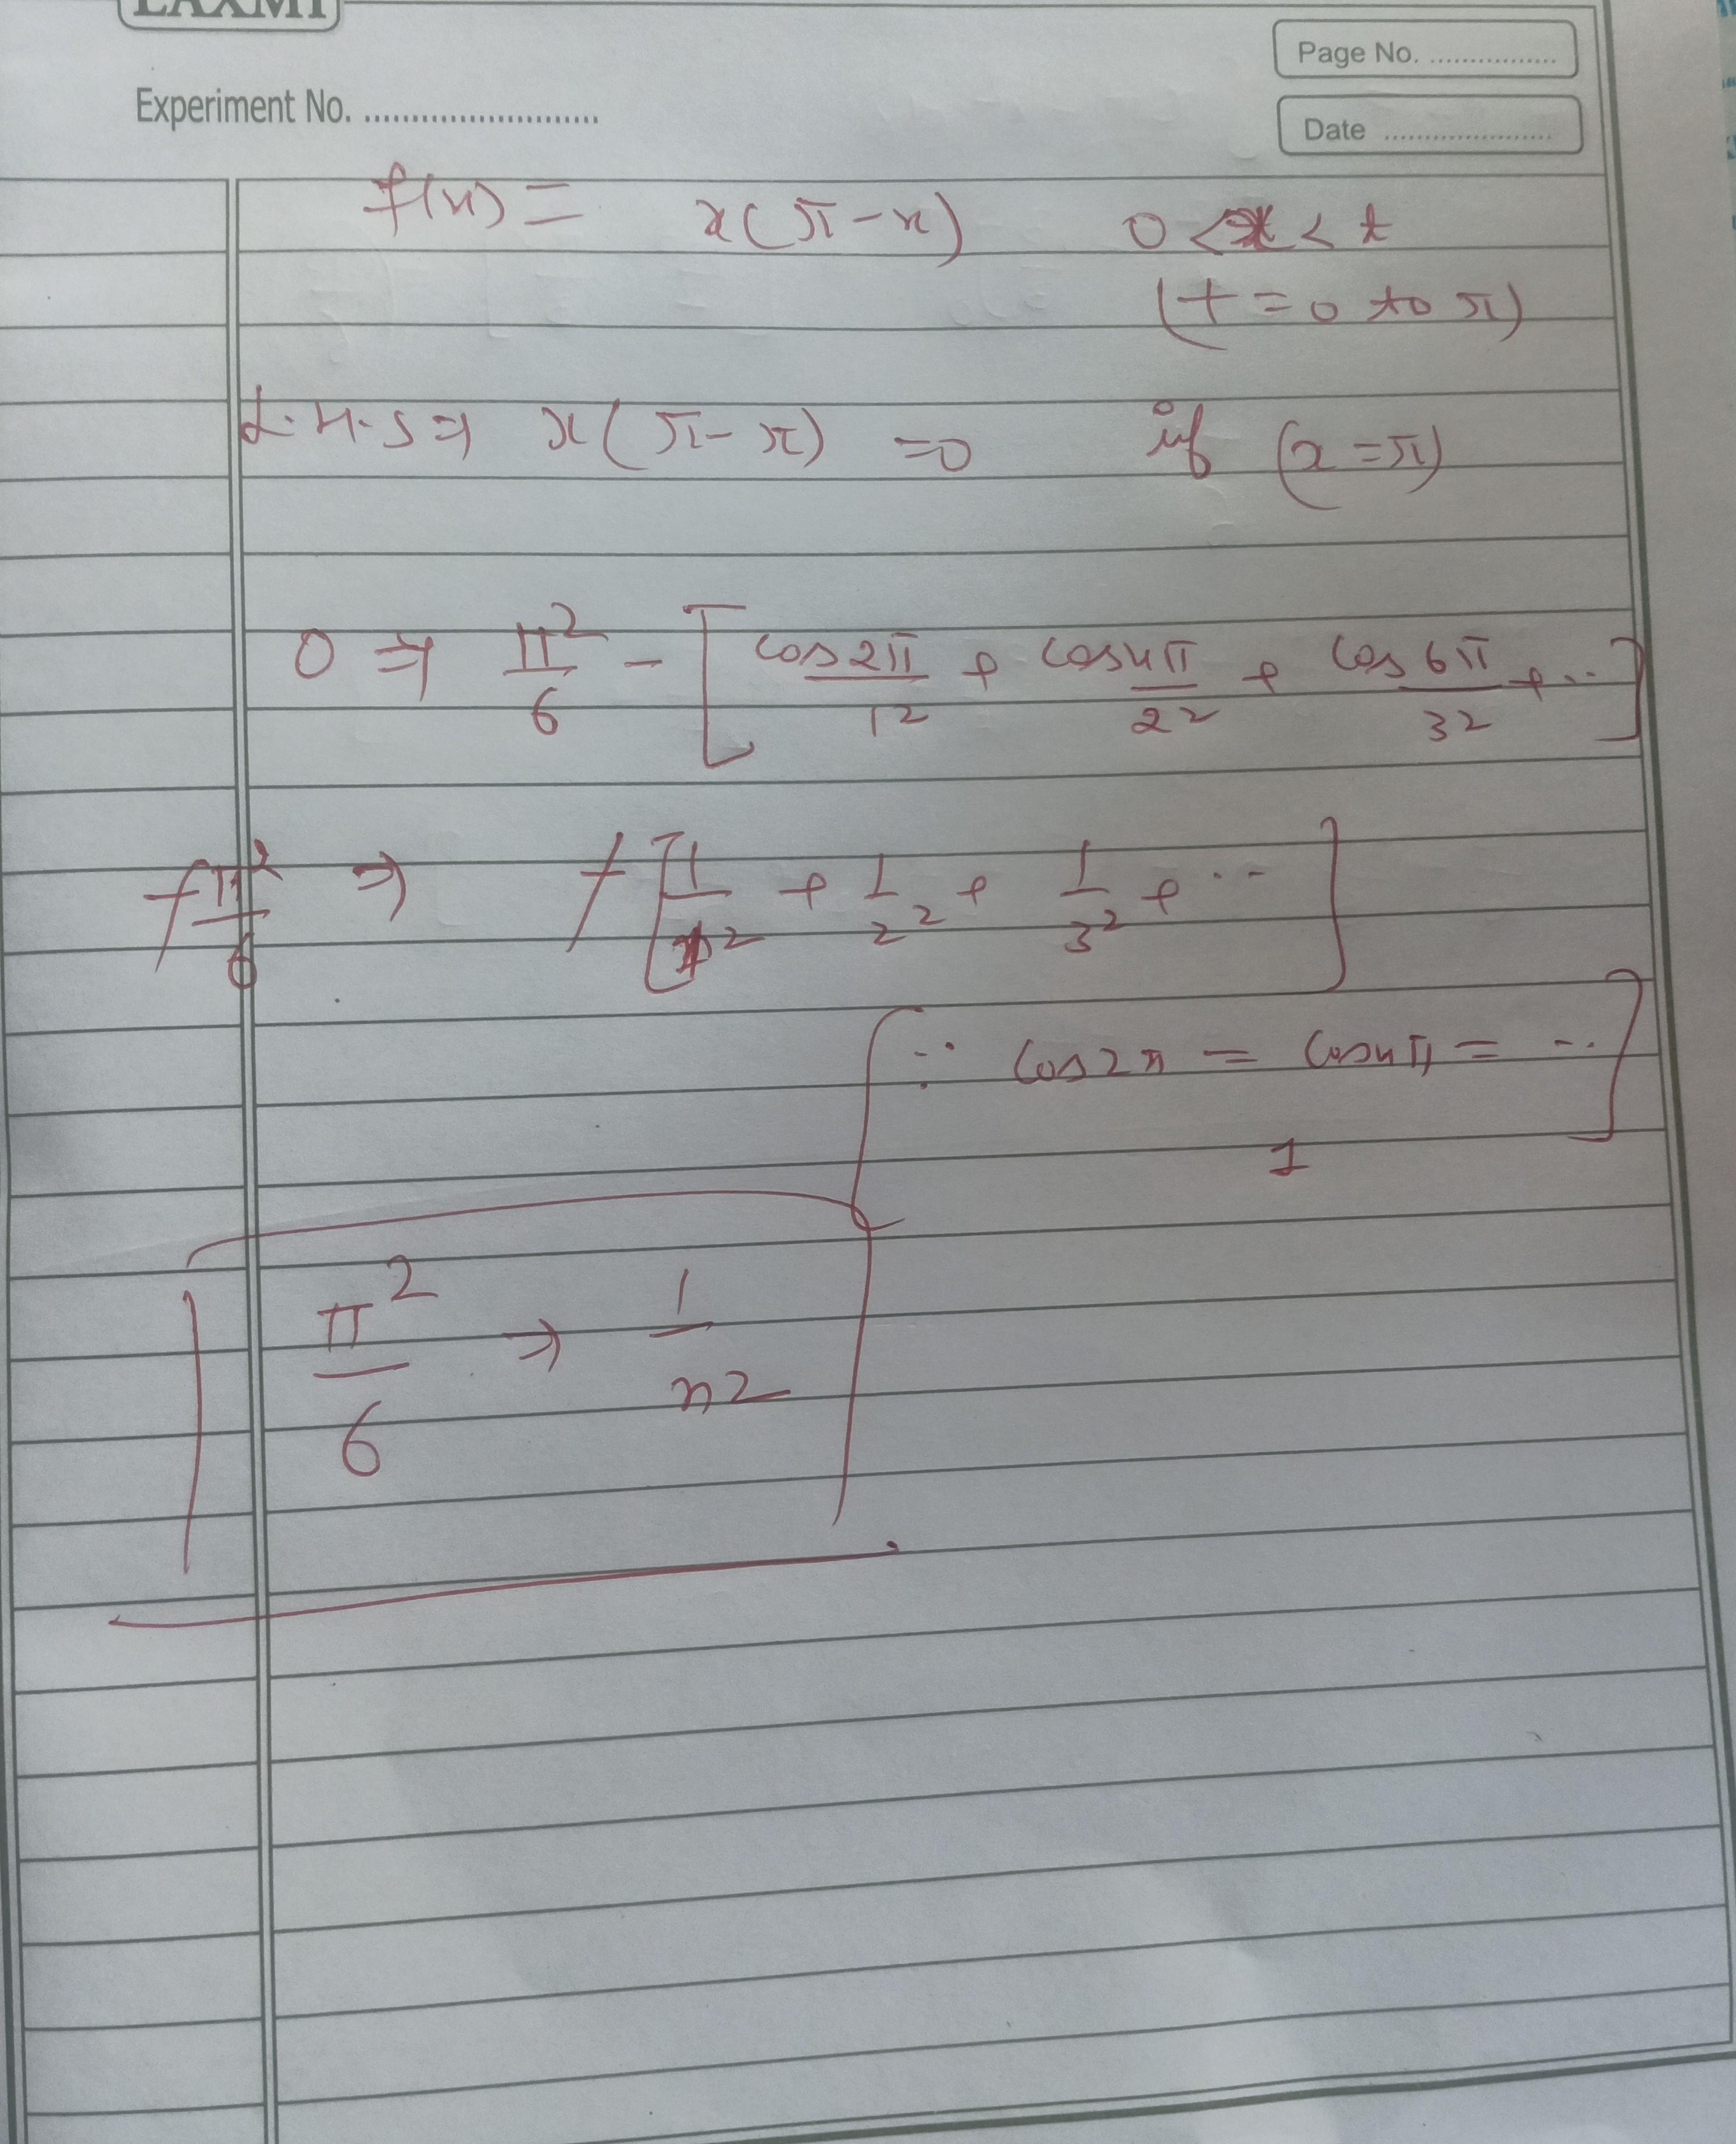 LAXMI
Page No. ................
Experiment No. .........................
Date .....................
f(x) = x(π-x) 0 < x < t
(t = 0 to π)
L.H.S ⇒ x(π-π) =0 if (x=π)
0 ⇒ π²/6 - [cos2π/1² + cos4π/2² + cos6π/3² + ..]
+π²/6 ⇒ +[1/1² + 1/2² + 1/3² + ..]
∵ cos2π = cos4π = ..
1
π²/6 ⇒ 1/n2